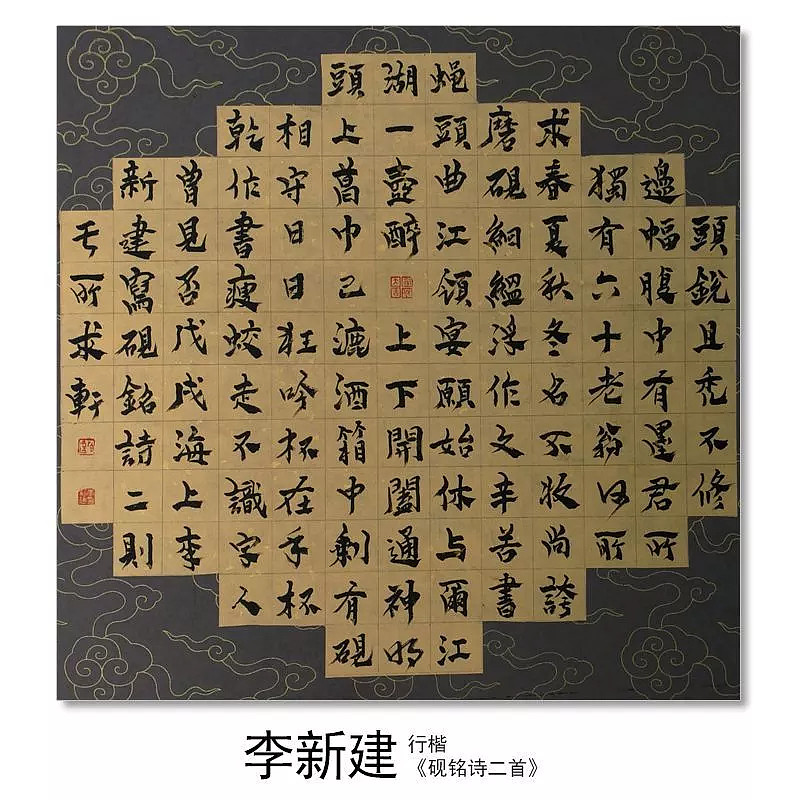 頭銳且禿不修
邊幅腹中有墨君所
獨有六十老翁何所
求春夏秋冬名不收尚誇
磨硯細縕浮作文辛苦書
蝇頭曲江領宴願始休与爾江
湖一壺醉
上下開闔通神明
頭上葛巾已漉酒箱中剩有硯
相守日日狂吟杯在手杯
乾作書瘦蛟走不識字人
曾見否戊戌海上李
新建寫硯銘詩二則
无所求軒
李新建
行楷
《砚铭诗二首》